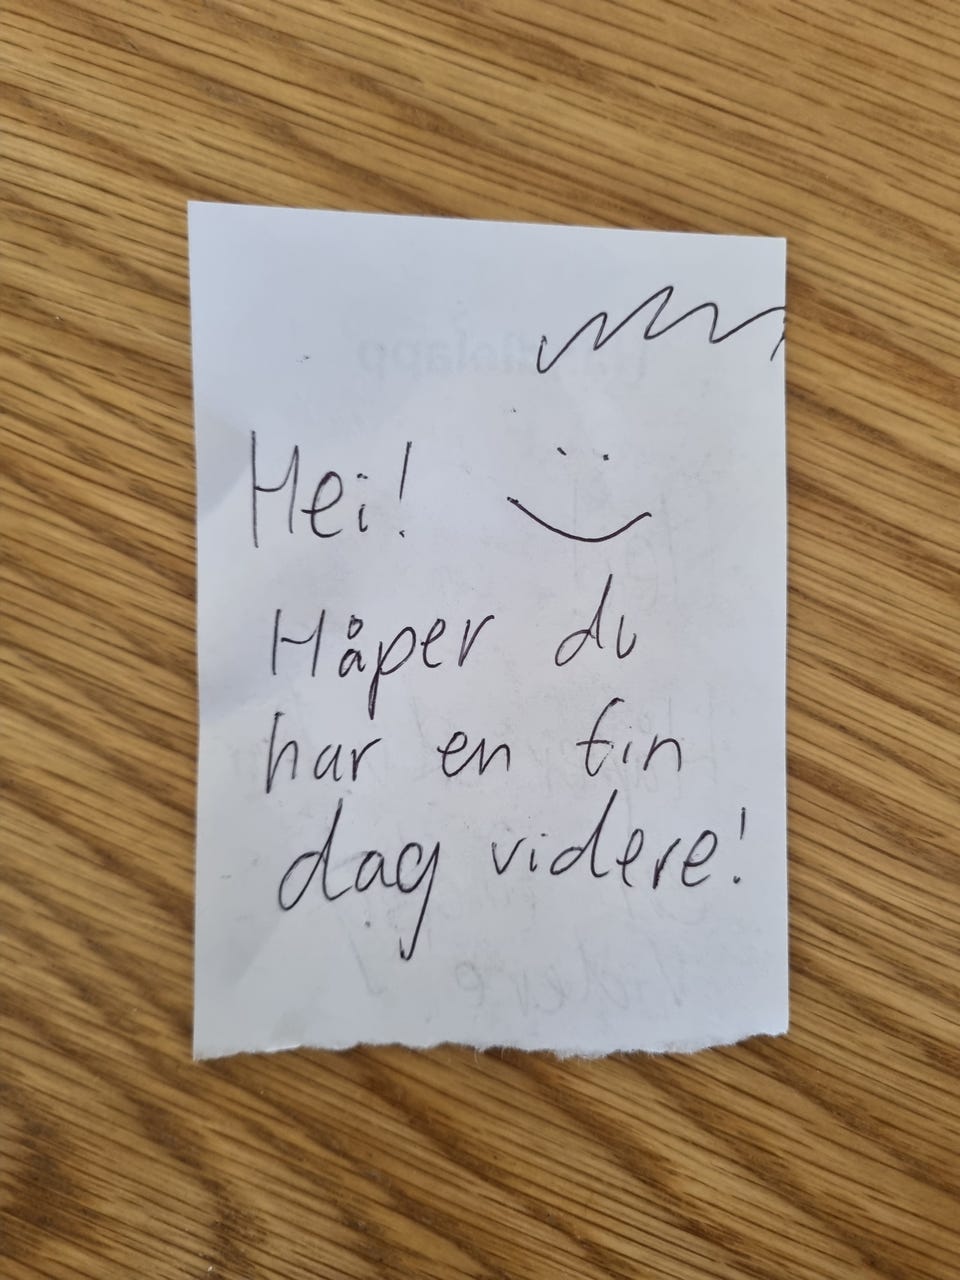 Hei!
Håper du
har en fin
dag videre!